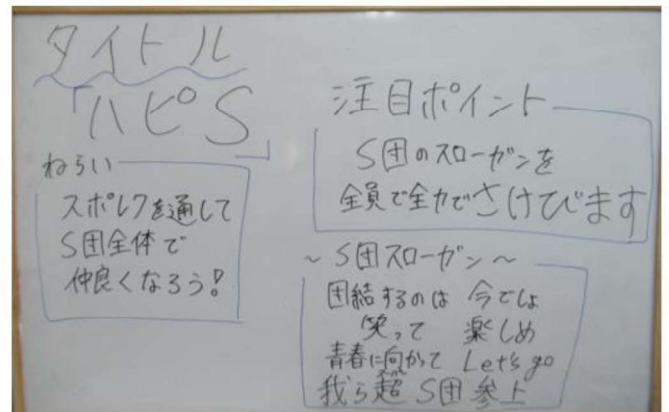 タイトル
「ハピS」
ねらい
スポレクを通して
S団全体で
仲良くなろう!
注目ポイント
S団のスローガンを
全員で全力でさけびます
~S団スローガン~
団結するのは 今でしょ
笑って 楽しめ
青春に向かって Let's go
我ら超 S団 参上